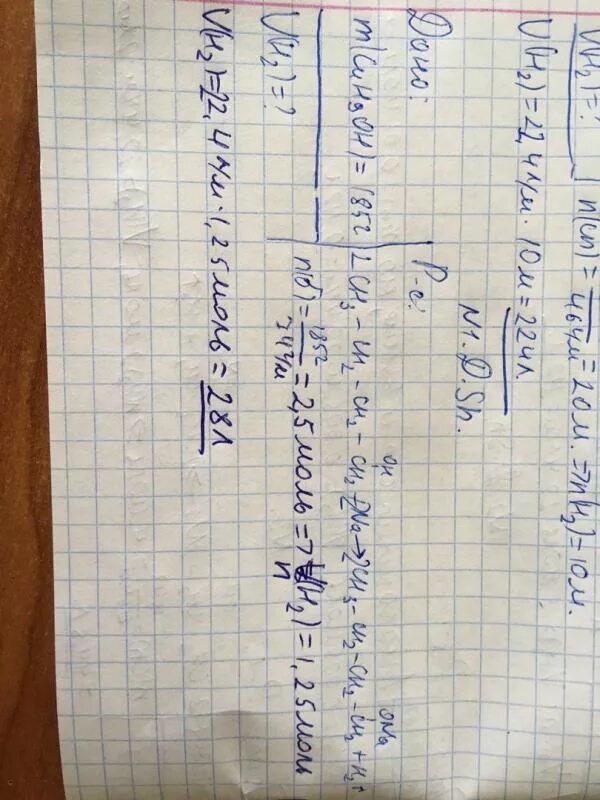 V(H₂)=? n(сп)= /46г/м=20м.=>n(H₂)=10м.
V(H₂)=22,4л/м·10м=224л.
N1. D. Sh.
Дано: Р-е:
m(C₄H₉OH)=185г 2CH₃-CH₂-CH₂-CH₂OH+2Na→2CH₃-CH₂-CH₂-CH₂ONa+H₂↑
V(H₂)=? n(б)=185г/74г/м=2,5моль=>n(H₂)=1,25моль
V(H₂)=22,4л/м·1,25моль=28л